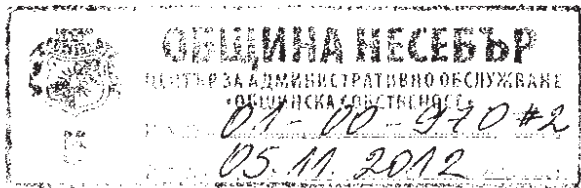 ОБЩИНА НЕСЕБЪР
ЦЕНТЪР ЗА АДМИНИСТРАТИВНО ОБСЛУЖВАНЕ
"ОБЩИНСКА СОБСТВЕНОСТ"
01-00-970 #2
05.11.2012